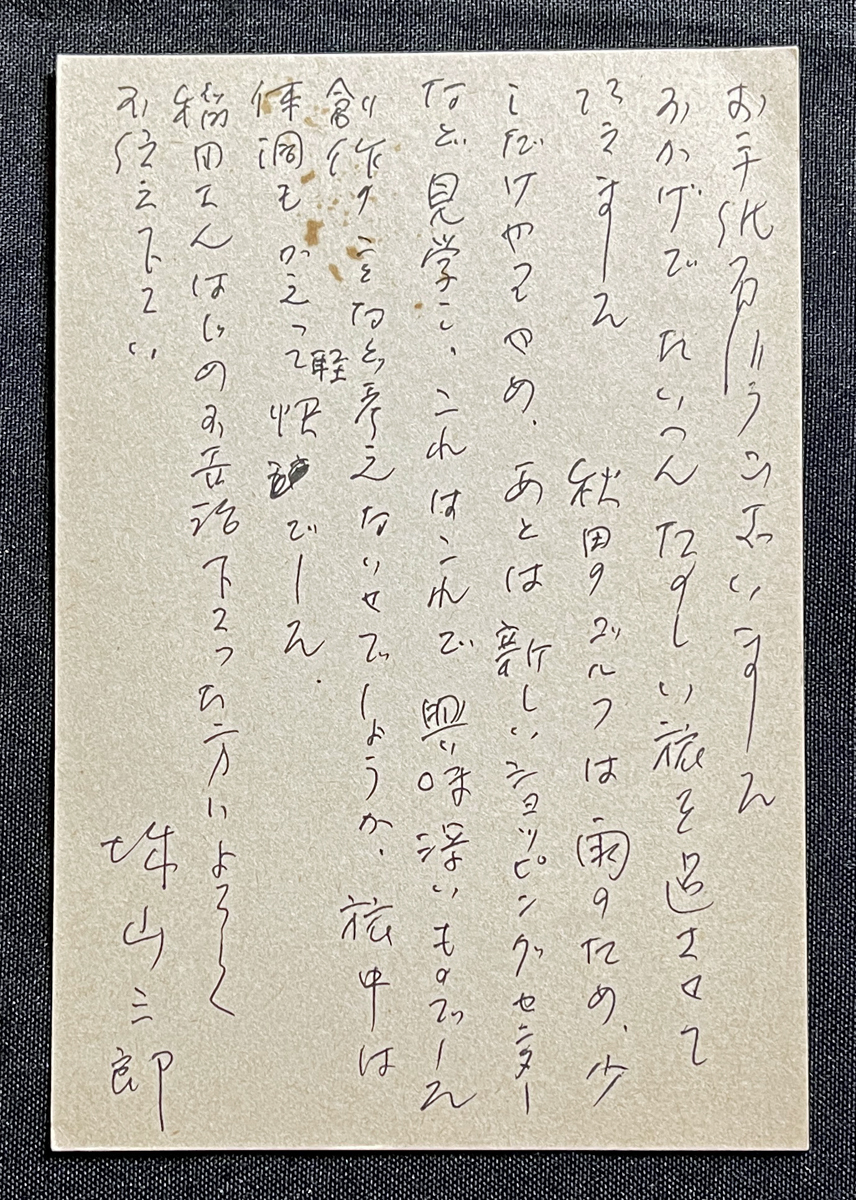 お手紙ありがとうございました
おかげで たいへん たのしい旅を過させて
頂きました 秋田のゴルフは雨のため、少
しだけやってやめ、あとは新しいショッピングセンター
など見学し、これはこれで興味深いものでした
創作のことなど考えないせいでしょうか、旅中は
体調もかえって軽快でした。
稲田さんはじめお世話下さった方によろしく
お伝え下さい
城山三郎